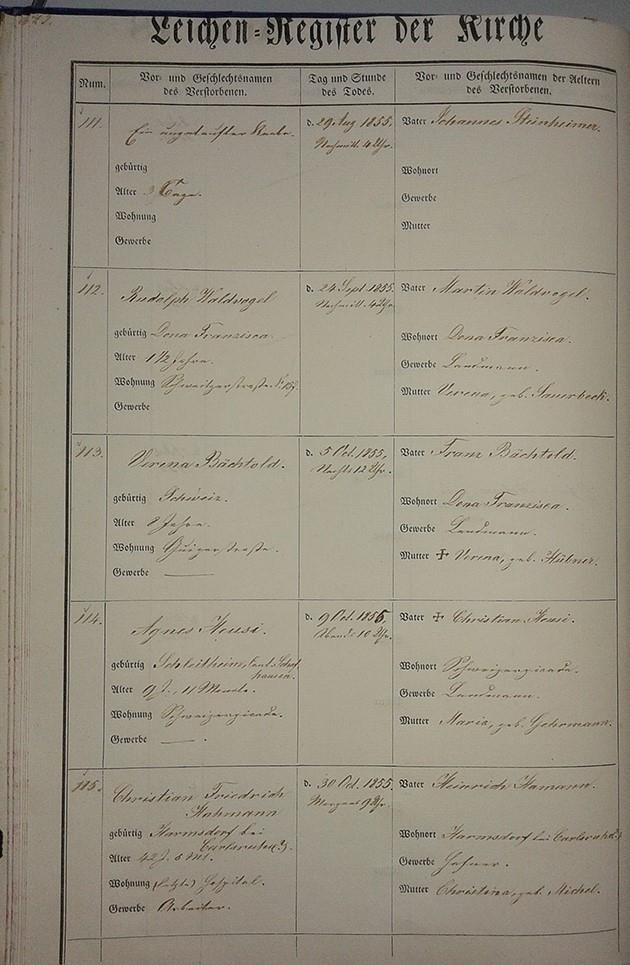 Leichen-Register der Kirche
Num.
Vor- und Geschlechtsnamen
des Verstorbenen.
Tag und Stunde
des Todes.
Vor- und Geschlechtsnamen der Aeltern
des Verstorbenen.
111.
Ein ungetaufter Knabe.
gebürtig
Alter 3 Tage.
Wohnung
Gewerbe
d. 29 Aug 1855.
Nachmitt. 4 Uhr.
Vater Johannes Steinheimer.
Wohnort
Gewerbe
Mutter
112.
Rudolph Waldvogel
gebürtig Dona Franzisca.
Alter 1 1/2 Jahre.
Wohnung Schweitzerstraße.
Gewerbe
d. 24 Sept. 1855.
Nachmitt. 4 Uhr.
Vater Martin Waldvogel.
Wohnort Dona Franzisca.
Gewerbe Landmann.
Mutter Verena, geb. Sauerbeck.
113.
Verena Bächtold.
gebürtig Schweiz.
Alter 8 Jahre.
Wohnung
Gewerbe —
d. 5 Oct. 1855,
Nachts 12 Uhr.
Vater Franz Bächtold.
Wohnort Dona Franzisca.
Gewerbe Landmann.
Mutter ✝ Verena, geb. Hübner.
114.
Agnes Heusi.
gebürtig Schleitheim, Cant. Schaf
hausen.
Alter 9 J., 11 Monate.
Wohnung Schweizerpicade.
Gewerbe — .
d. 9 Oct. 1855,
Abends 10 Uhr.
Vater ✝ Christian Heusi.
Wohnort Schweizerpicade.
Gewerbe Landmann.
Mutter Maria, geb. Gehrmann.
115.
Christian Friedrich
Hahmann
gebürtig Harmsdorf bei
Carlsruhe(?).
Alter 42 J. 5 Mt.
Wohnung (letzte) Hospital.
Gewerbe Arbeiter.
d. 30 Oct. 1855.
Morgens 9 Uhr.
Vater Heinrich Hamann.
Wohnort Harmsdorf bei Carlsruhe(?)
Gewerbe Hafner.
Mutter Christina, geb. Michel.